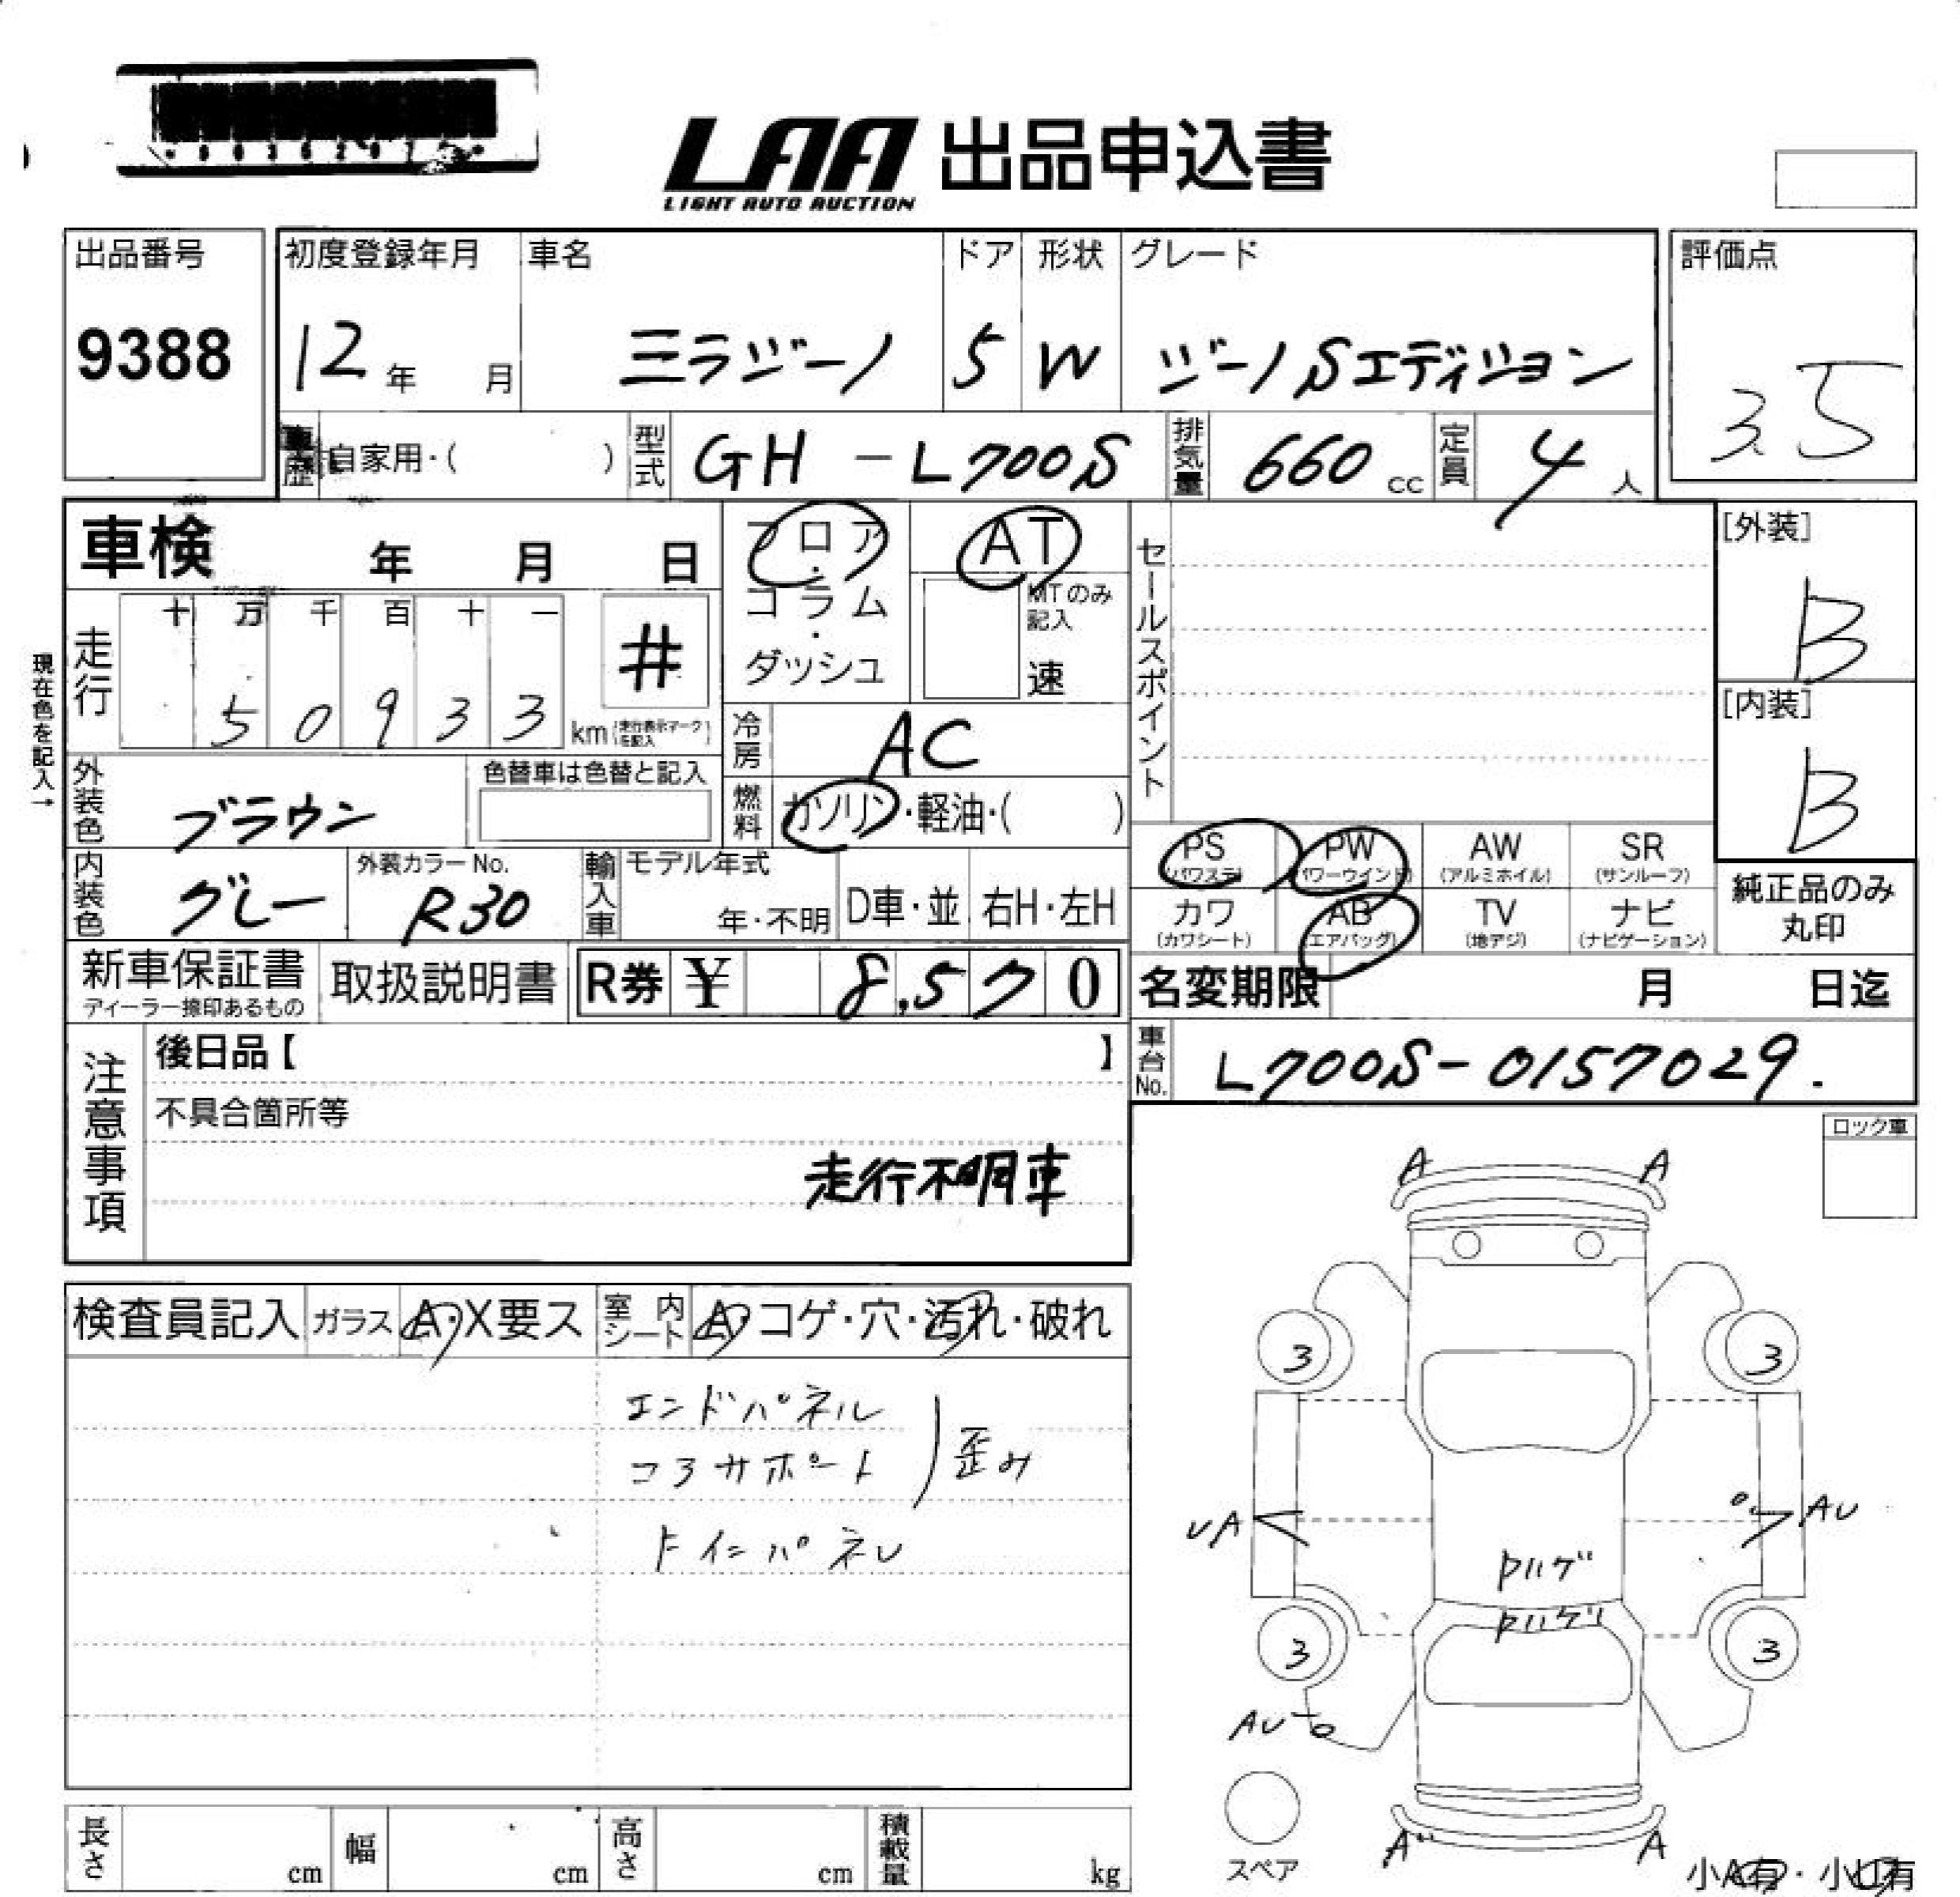 LAA 出品申込書
LIGHT AUTO AUCTION
出品番号 初度登録年月 車名 ドア 形状 グレード 評価点
9388 12年 月 ミラジーノ 5 W ジーノSエディション 3.5
車歴 自家用・( ) 型式 GH-L700S 排気量 660 cc 定員 4 人
車検 年 月 日 フロア・コラム・ダッシュ AT
MTのみ記入 速
セールスポイント
[外装] B
[内装] B
現在色を記入→
走行 十 万 千 百 十 一
5 0 9 3 3 km #
(走行表示マークを記入)
冷房 AC
外装色 ブラウン 色替車は色替と記入
燃料 ガソリン・軽油・( )
PS (パワステ) PW (パワーウインド) AW (アルミホイル) SR (サンルーフ)
カワ (カワシート) AB (エアバッグ) TV (地デジ) ナビ (ナビゲーション)
純正品のみ丸印
内装色 グレー 外装カラーNo. R30 輸入車 モデル年式 年・不明 D車・並 右H・左H
新車保証書 ディーラー捺印あるもの 取扱説明書 R券 ¥ 8,570
名変期限 月 日迄
車台No. L700S-0157029.
注意事項 後日品【 】
不具合箇所等
走行不明車
ロック車
A A
検査員記入 ガラス A・X要ス 室内シート A・コゲ・穴・汚れ・破れ
エンドパネル
コアサポート
歪み
3 3
VA AU
Pハゲ
Pハゲ
3 3
AU
スペア
A A
長さ cm 幅 cm 高さ cm 積載量 kg
小A有・小U有